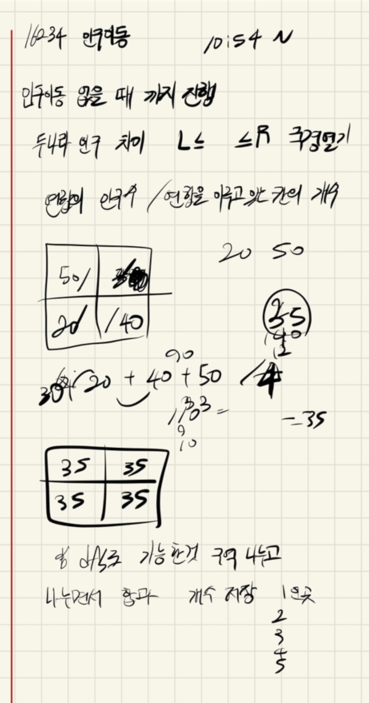 16234 인구이동 10:54 N
인구이동 없을 때 까지 진행
두나라 인구 차이 L≤ ≤R 국경열기
연합의 인구수 / 연합을 이루고 있는 칸의 개수
20 50
50/
20/ /40
35
90
30 20 + 40 + 50 /4
= 35
35 35
35 35
dfs로 가능한것 구역 나누고
나누면서 합과 개수 저장 1인곳
2
3
4
5